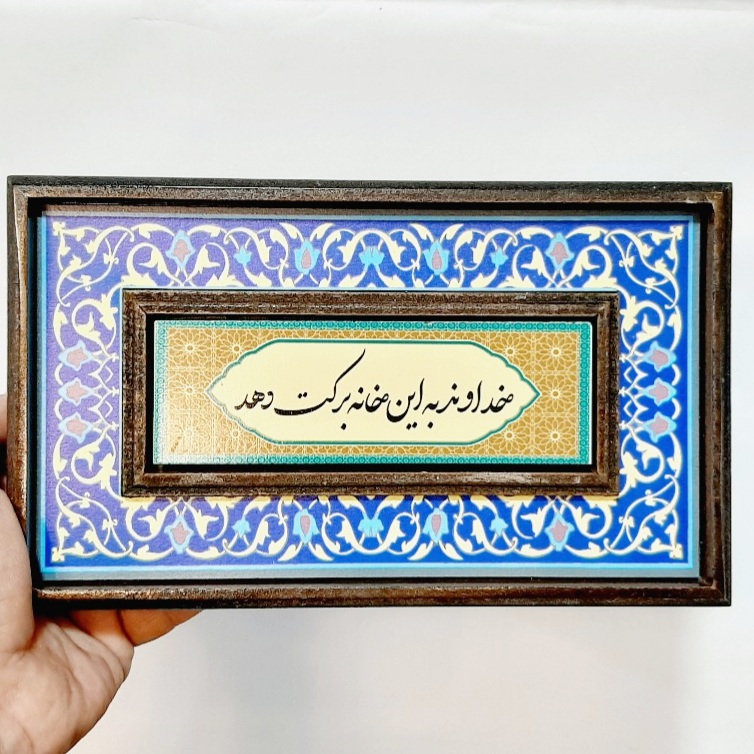 خداوند به این خانه برکت دهد